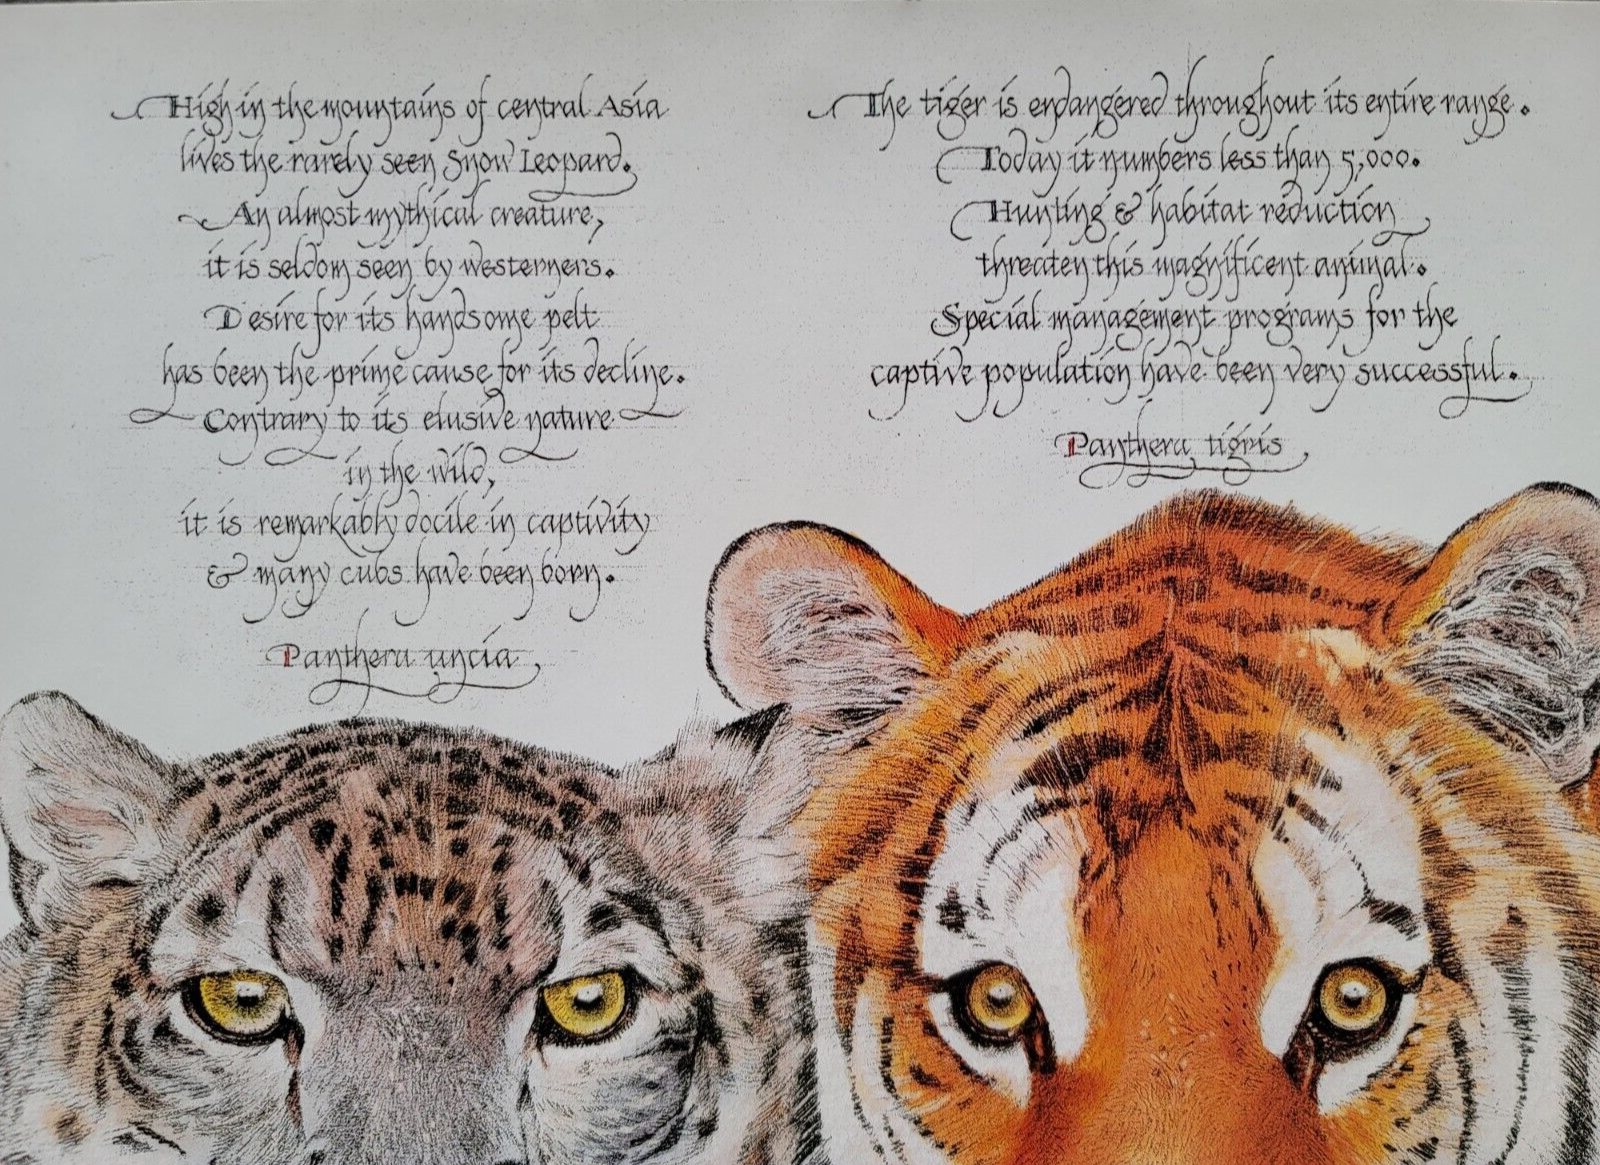 High in the mountains of central Asia
lives the rarely seen Snow Leopard.
An almost mythical creature,
it is seldom seen by westerners.
Desire for its handsome pelt
has been the prime cause for its decline.
Contrary to its elusive nature
in the wild,
it is remarkably docile in captivity
& many cubs have been born.
Panthera uncia
The tiger is endangered throughout its entire range.
Today it numbers less than 5,000.
Hunting & habitat reduction
threaten this magnificent animal.
Special management programs for the
captive population have been very successful.
Panthera tigris